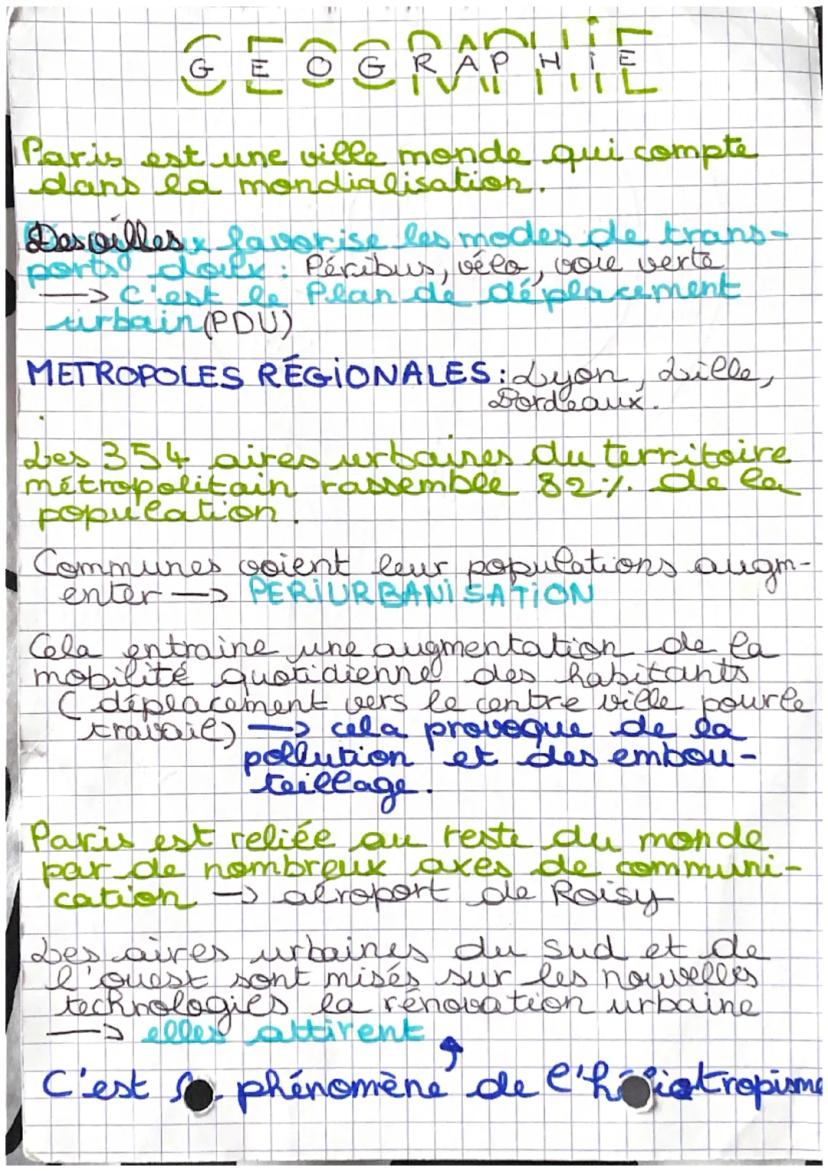 GEOGRAPHiE
Paris est une ville monde qui compte
dans la mondialisation.
Des villes favorise les modes de trans-
ports doux : Péribus, vélo, voie verte
—> C'est le Plan de déplacement
urbain (PDU)
METROPOLES RÉGIONALES : Lyon, Lille,
Bordeaux.
Les 354 aires urbaines du territoire
métropolitain rassemble 82% de la
population.
Communes voient leur populations augm-
enter —> PERIURBANiSATiON
Cela entraine une augmentation de la
mobilité quotidienne des habitants
( déplacement vers le centre ville pour le
travail) —> cela provoque de la
pollution et des embou-
teillage.
Paris est reliée au reste du monde
par de nombreux axes de communi-
cation —> aéroport de Roisy
Les aires urbaines du Sud et de
l'ouest sont misés sur les nouvelles
technologies la rénovation urbaine
—> elles attirent
C'est phénomène de l'héliotropisme